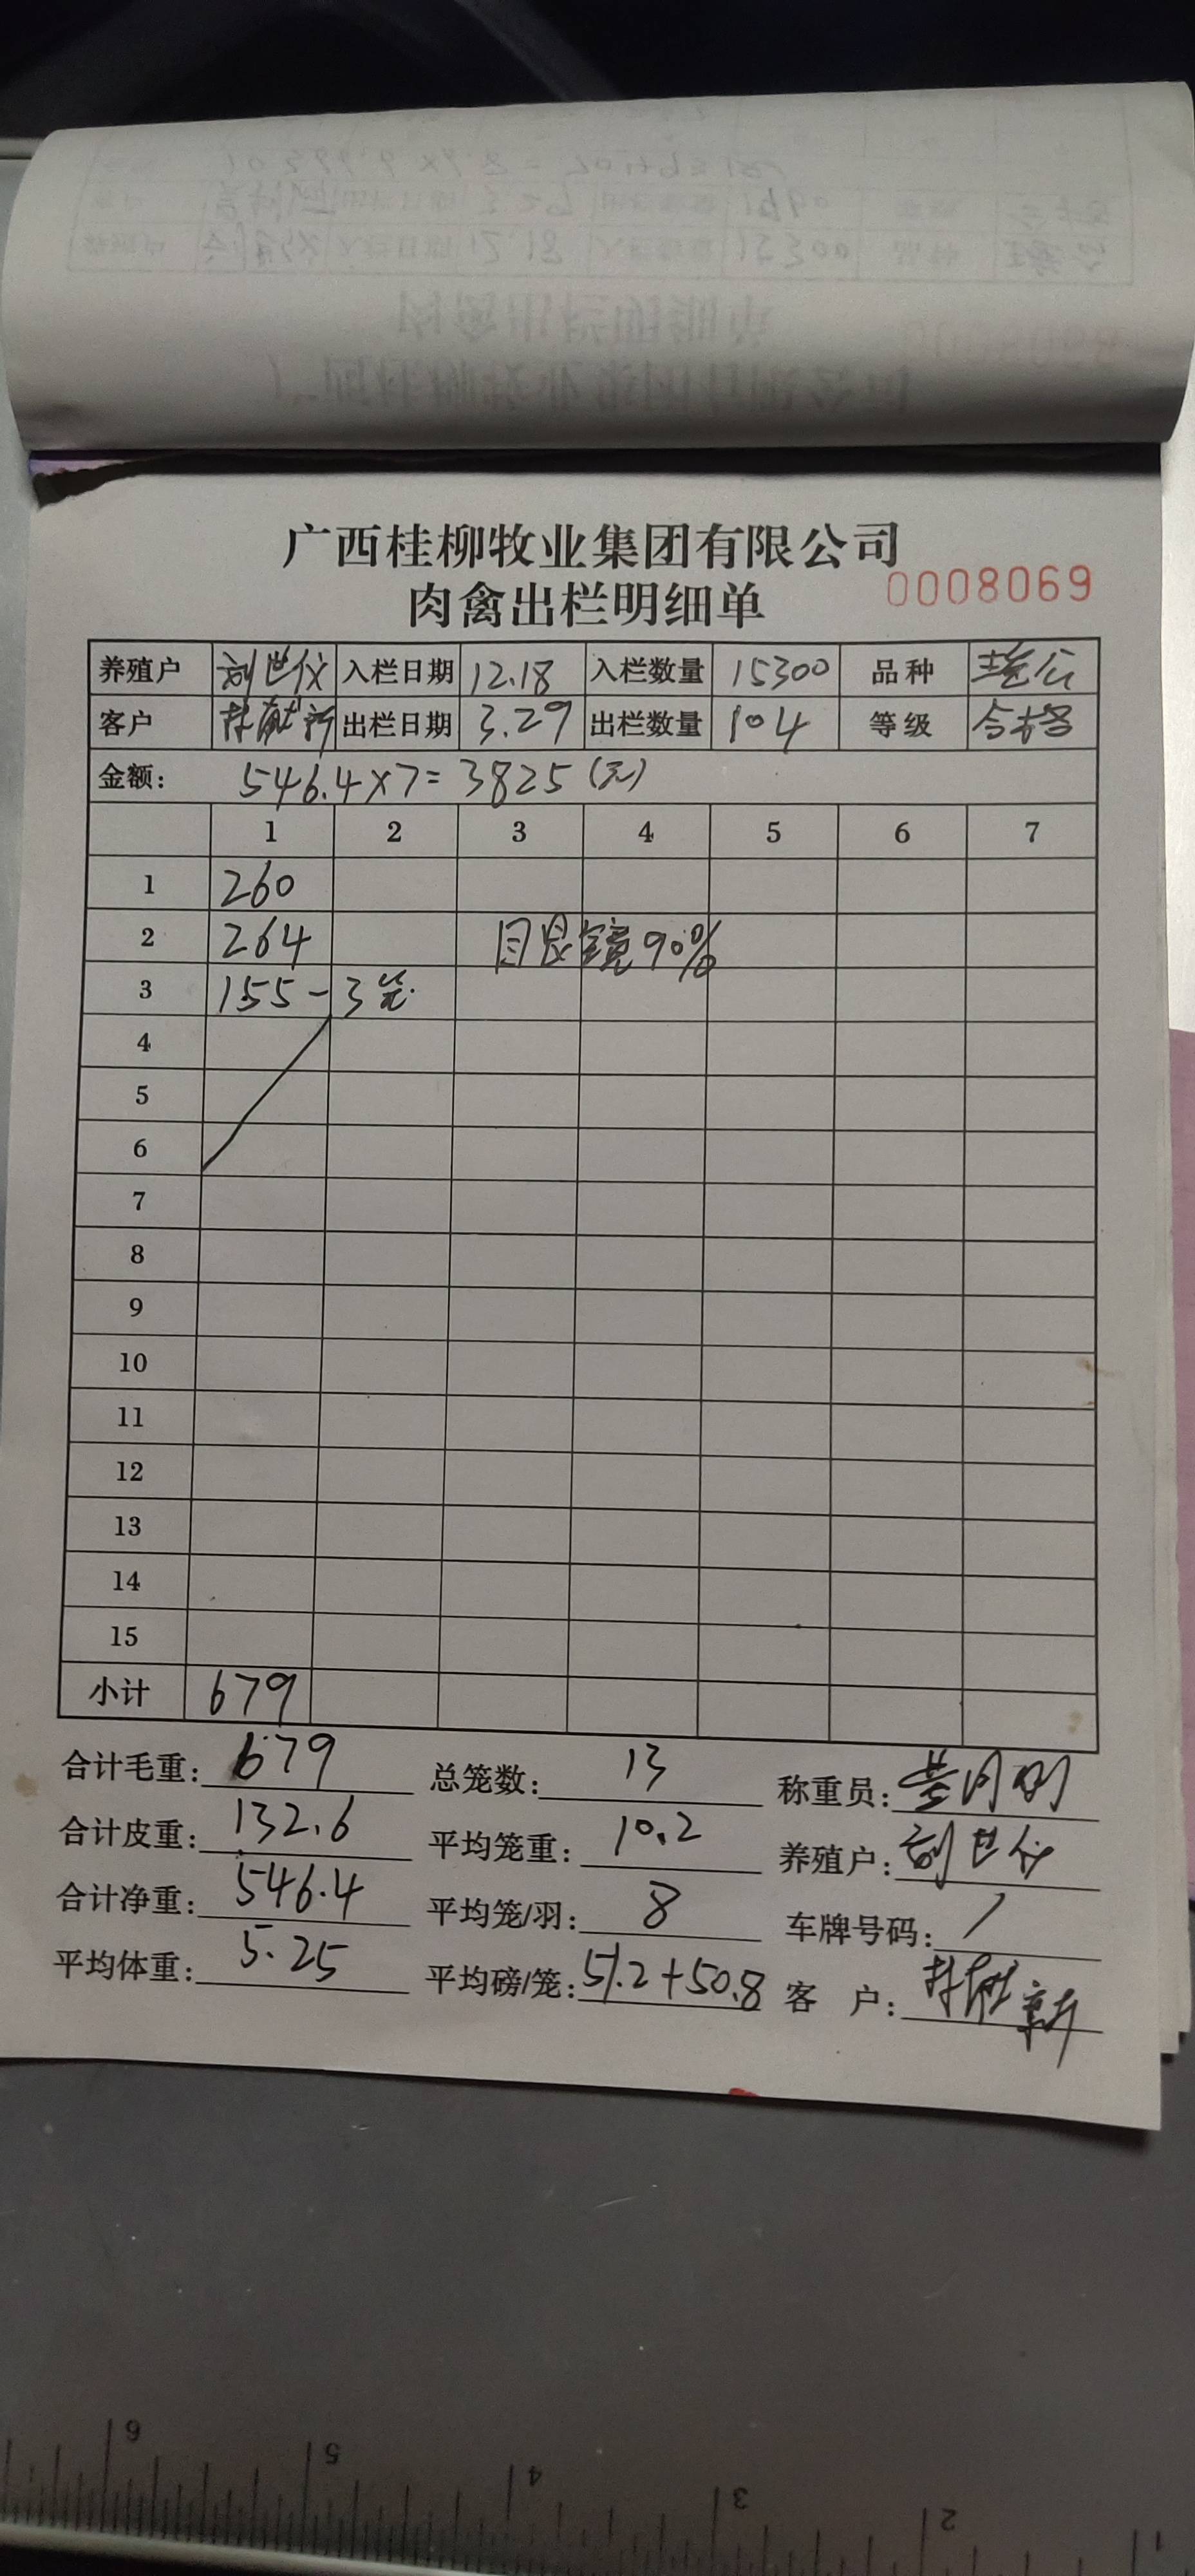 广西桂柳牧业集团有限公司
肉禽出栏明细单
0008069
养殖户 刘世仪 入栏日期 12.18 入栏数量 15300 品种
客户 林 新 出栏日期 3.29 出栏数量 104 等级 合格
金额: 546.4×7=3825(元)
1 2 3 4 5 6 7
1 260
2 264 目艮镜90%
3 155-3笼.
4
5
6
7
8
9
10
11
12
13
14
15
小计 679
合计毛重: 679 总笼数: 13 称重员:
合计皮重: 132.6 平均笼重: 10.2 养殖户: 刘世仪
合计净重: 546.4 平均笼/羽: 8 车牌号码: /
平均体重: 5.25 平均磅/笼: 51.2+50.8 客户: 林 新
6 5 4 3 2 1